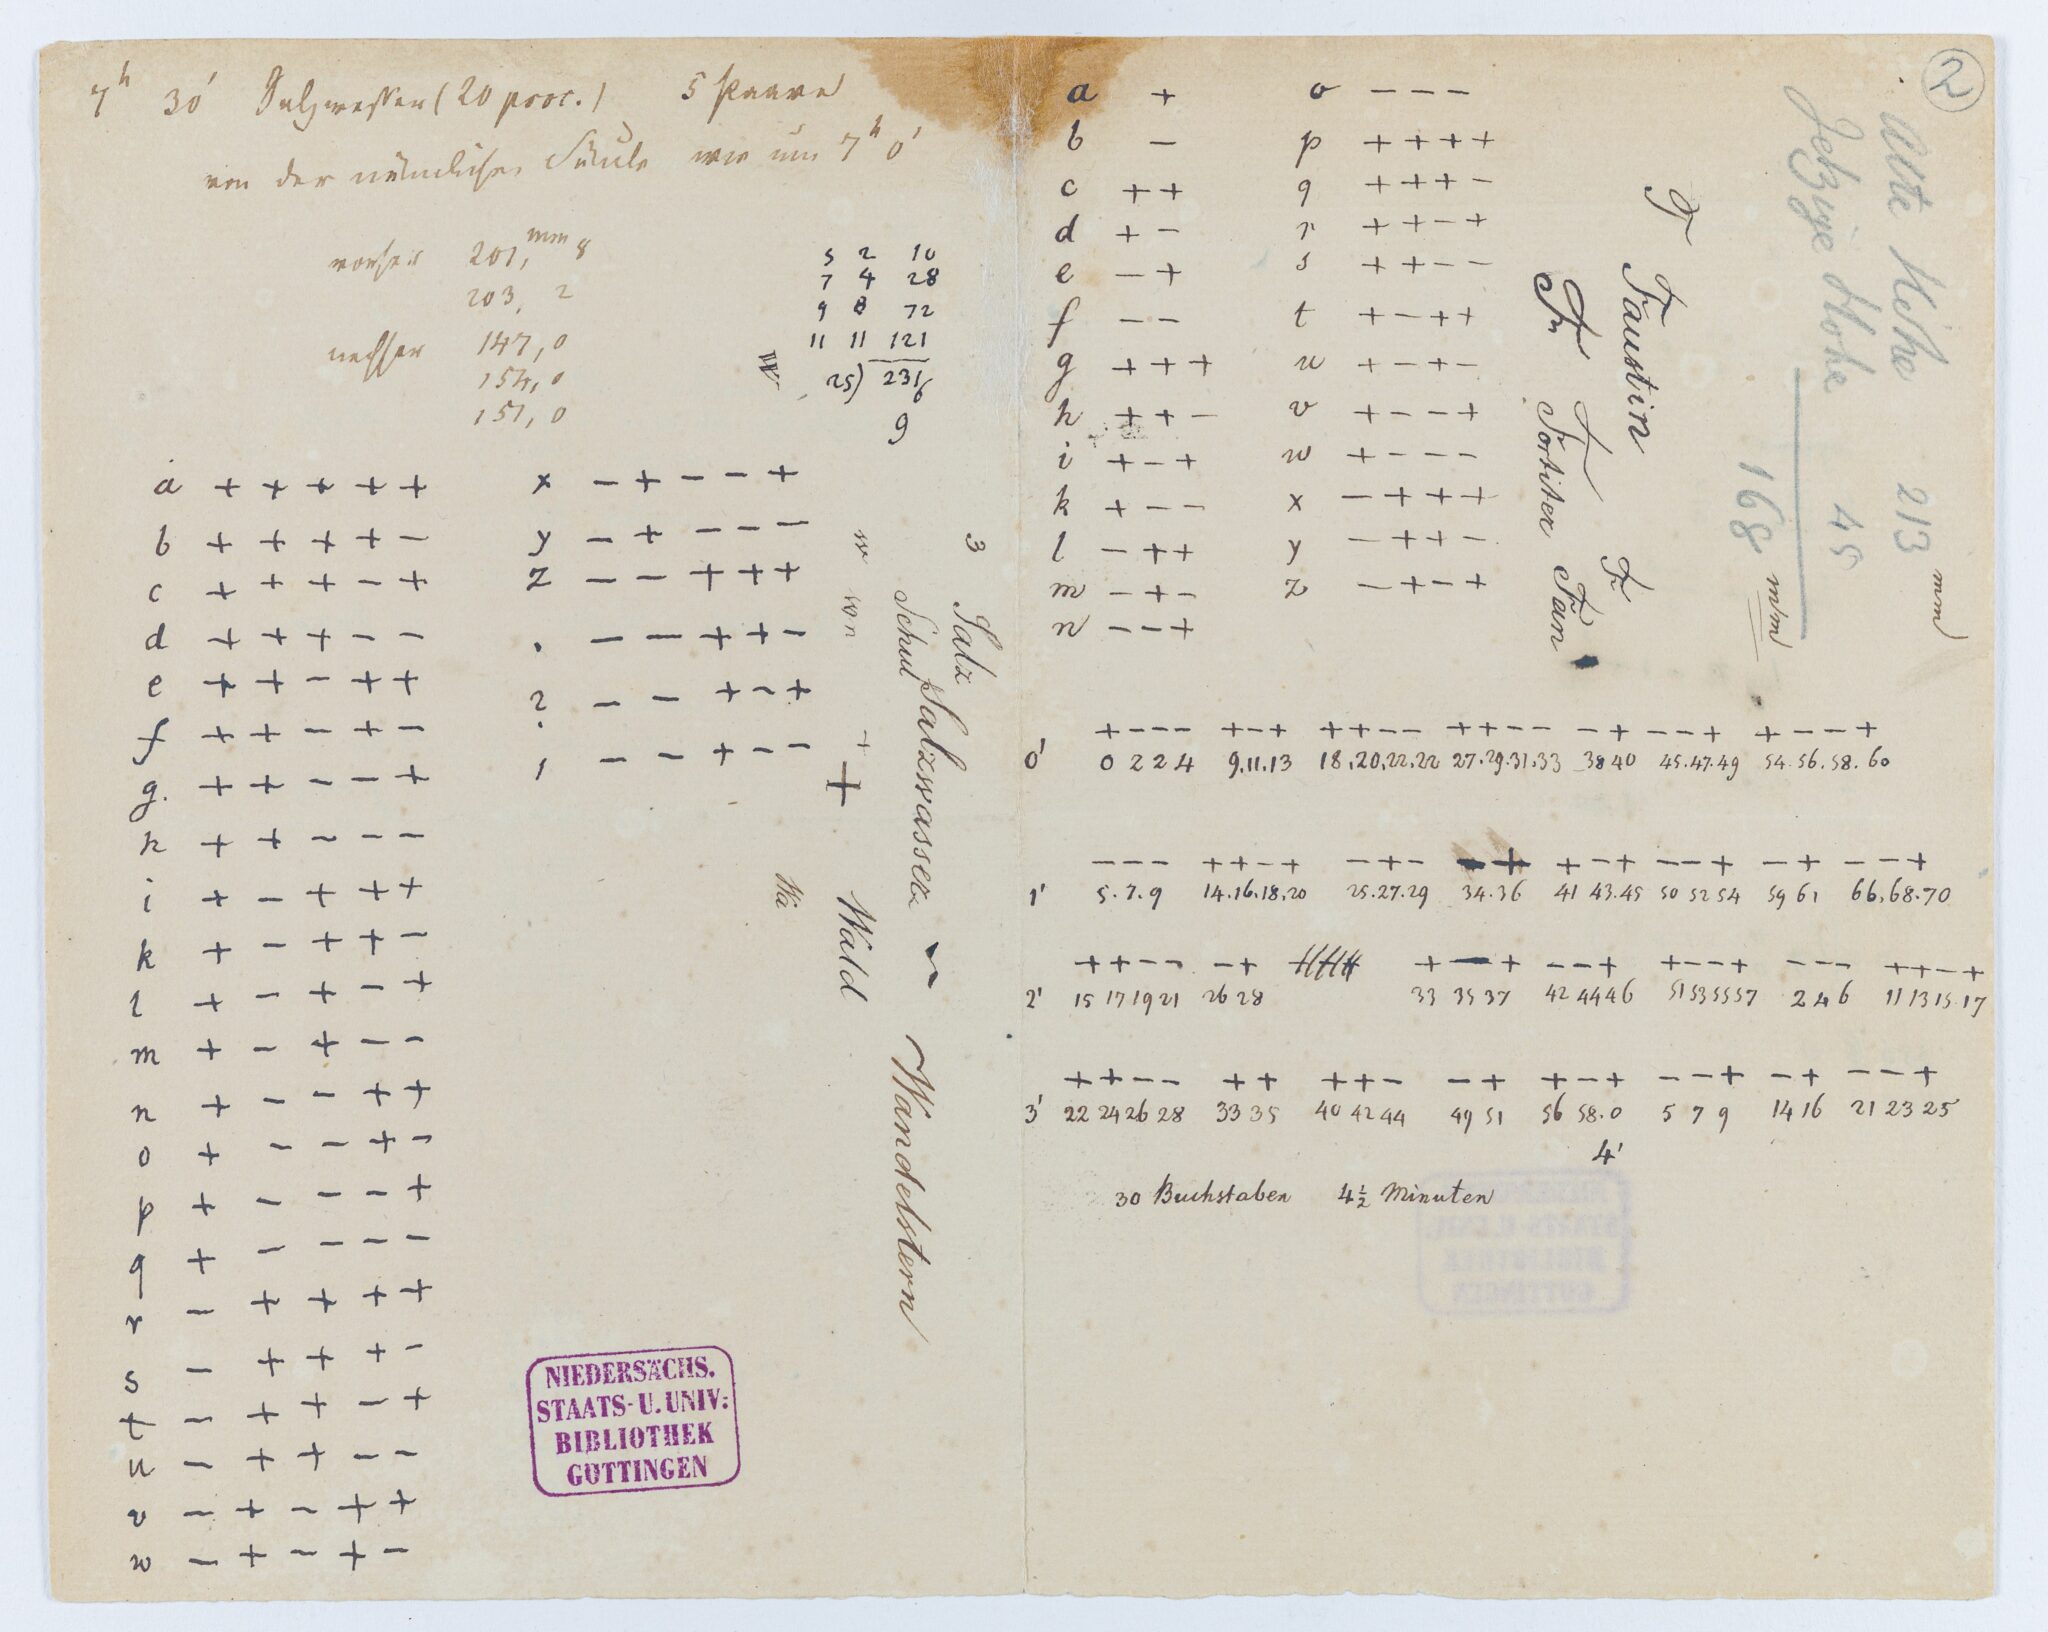 7h 30' Salzwasser (20 proc.) 5 Paare
von der nämlichen Säule wie um 7h 0'
vorher 201,mm 8
203, 2
nachher 147,0
154,0
151,0
5 2 10
7 4 28
9 8 72
11 11 121
25) 231/6
9
W
a + + + + +
b + + + + −
c + + + − +
d + + + − −
e + + − + +
f + + − + −
g. + + − − +
h + + − − −
i + − + + +
k + − + + −
l + − + − +
m + − + − −
n + − − + +
o + − − + −
p + − − − +
q + − − − −
r − + + + +
s − + + + −
t − + + − +
u − + + − −
v − + − + +
w − + − + −
x − + − − +
y − + − − −
z − − + + +
. − − + + −
? − − + − +
1 − − + − −
3
Salz
Schul Salzwasser
Wandelstern
+
+ Wald
Wa
NIEDERSÄCHS.
STAATS- U. UNIV:
BIBLIOTHEK
GÖTTINGEN
2
a +
b −
c + +
d + −
e − +
f − −
g + + +
h + + −
i + − +
k + − −
l − + +
m − + −
n − − +
o − − −
p + + + +
q + + + −
r + + − +
s + + − −
t + − + +
u + − + −
v + − − +
w + − − −
x − + + +
y − + + −
z − + − +
Alte Höhe 213 mm
Jetzige Höhe 45
168 mm
F
Faustin F
Fr Fortiter Fan
+ − − − + − + + + − − + + − − − + − − + + − − +
0' 0 2 2 4 9.11.13 18.20.22.22 27.29.31.33 38 40 45.47.49 54.56.58.60
− − − + + − + − + − − + + − + − − + − + − − +
1' 5.7.9 14.16.18.20 25.27.29 34.36 41 43.45 50 52 54 59 61 66.68.70
+ + − − − + + − + − − + + − − + − − − + + − +
2' 15 17 19 21 26 28 33 35 37 42 44 46 51 53 55 57 2 4 6 11 13 15 17
+ + − − + + + + − − + + − + − − + − + − − +
3' 22 24 26 28 33 35 40 42 44 49 51 56 58.0 5 7 9 14 16 21 23 25
4'
30 Buchstaben 4½ Minuten